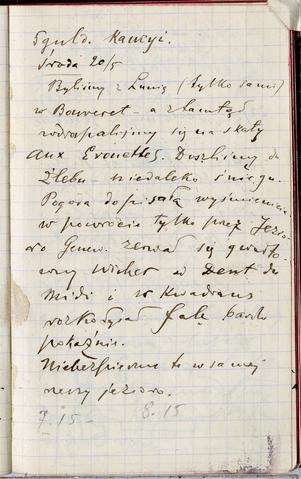 5 guld. Kaucyi.
Środa 20/5
Byliśmy z Lunią (tylko sami)
w Bouveret – a ztamtąd
wdrapaliśmy się na skały
aux Evouettes. Doszliśmy do
żlebu niedaleko śniegu.
Pogoda dopisała wyśmienicie
w powrocie tylko przez Jezio-
ro Genew. zerwał się gwałto-
wny wicher od Dent du
Midi i w kwadrans
rozkołysał fale bardzo
pokaźnie.
Niebezpieczne to w samej
rzeczy jezioro.
7.15 – 8.15